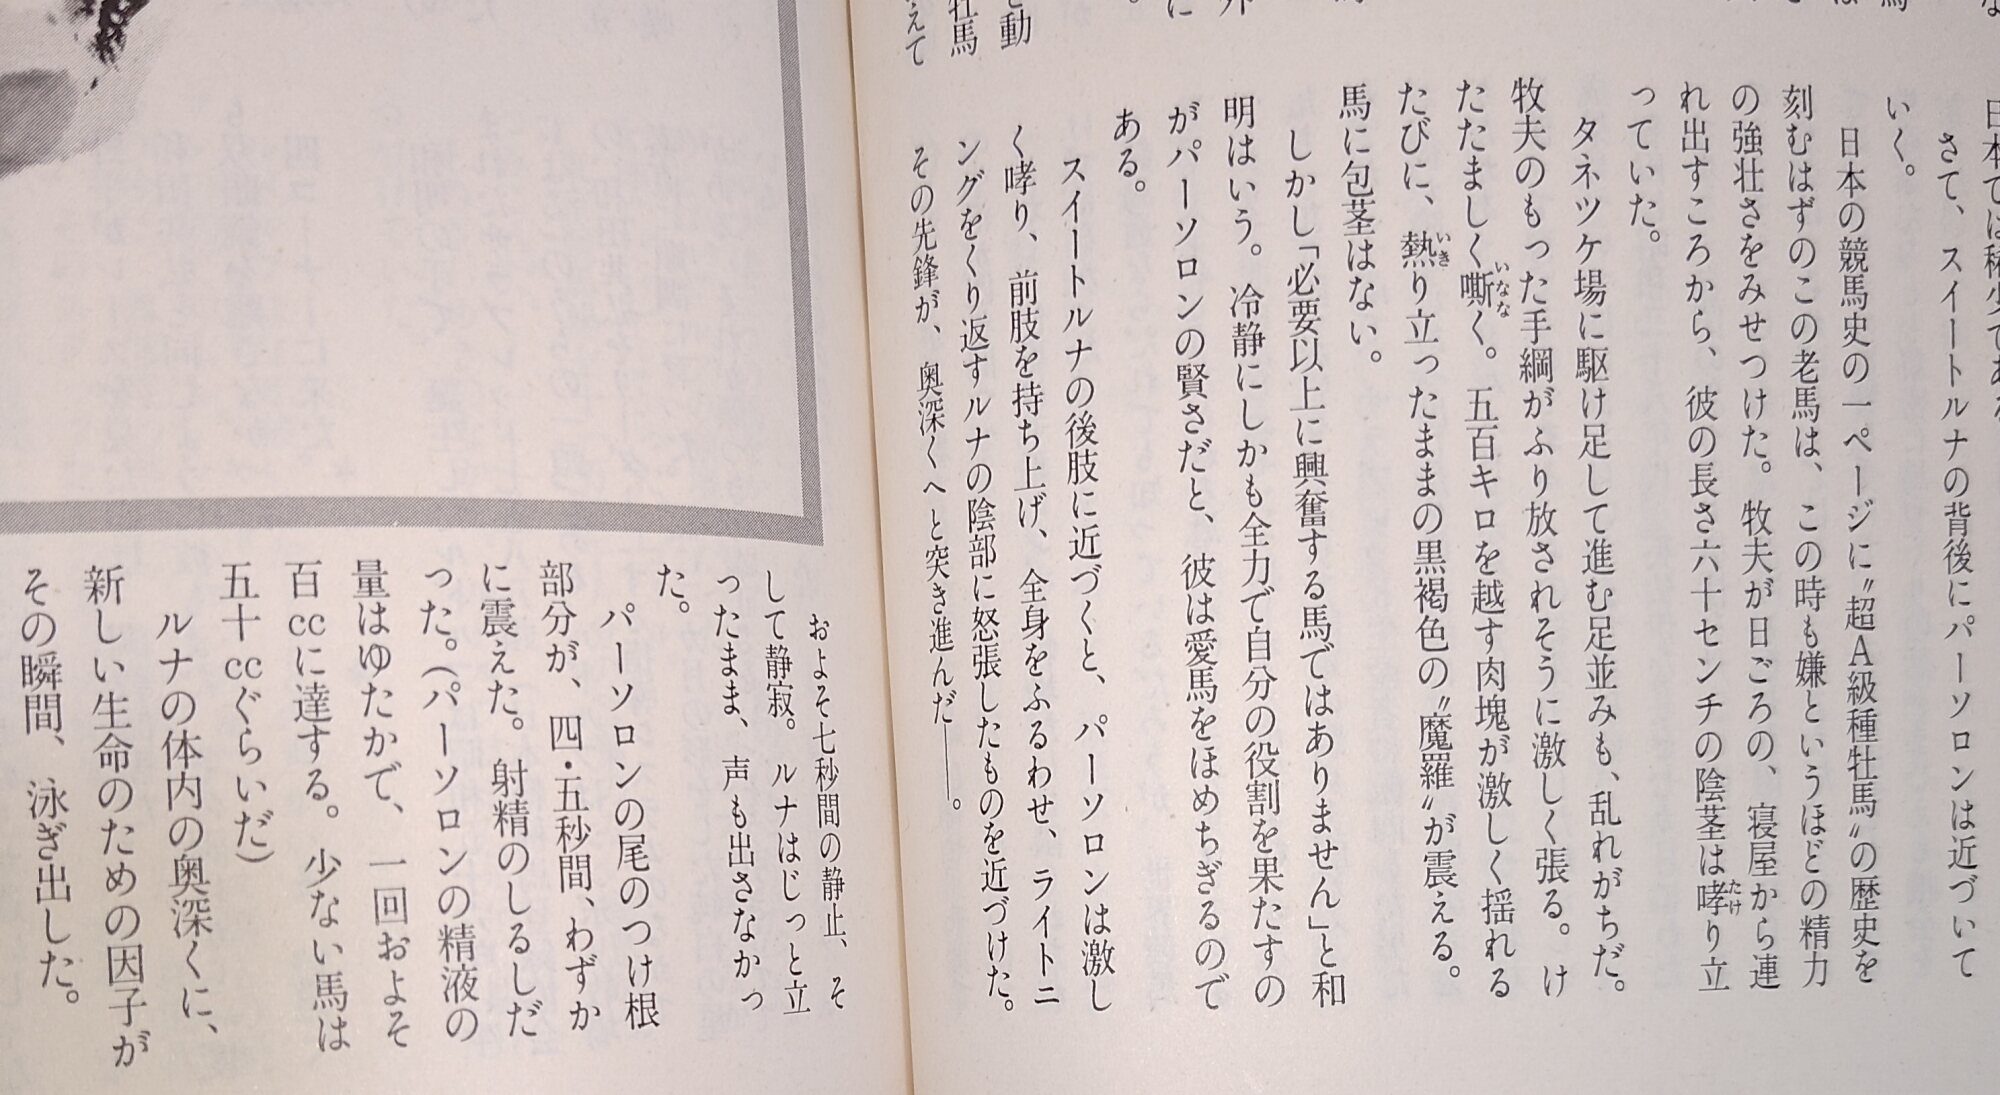 日本では稀少である
さて、スイートルナの背後にパーソロンは近づいて
いく。
日本の競馬史の一ページに〝超A級種牡馬〟の歴史を
刻むはずのこの老馬は、この時も嫌というほどの精力
の強壮さをみせつけた。牧夫が日ごろの、寝屋から連
れ出すころから、彼の長さ六十センチの陰茎は哮り立
っていた。
タネツケ場に駆け足して進む足並みも、乱れがちだ。
牧夫のもった手綱がふり放されそうに激しく張る。け
たたましく嘶く。五百キロを越す肉塊が激しく揺れる
たびに、熱り立ったままの黒褐色の〝魔羅〟が震える。
馬に包茎はない。
しかし「必要以上に興奮する馬ではありません」と和
明はいう。冷静にしかも全力で自分の役割を果たすの
がパーソロンの賢さだと、彼は愛馬をほめちぎるので
ある。
スイートルナの後肢に近づくと、パーソロンは激し
く哮り、前肢を持ち上げ、全身をふるわせ、ライトニ
ングをくり返すルナの陰部に怒張したものを近づけた。
その先鋒が、奥深くへと突き進んだ――。
と動
牡馬
えて
およそ七秒間の静止、そ
して静寂。ルナはじっと立
ったまま、声も出さなかっ
た。
パーソロンの尾のつけ根
部分が、四・五秒間、わずか
に震えた。射精のしるしだ
った。(パーソロンの精液の
量はゆたかで、一回およそ
百ccに達する。少ない馬は
五十ccぐらいだ)
ルナの体内の奥深くに、
新しい生命のための因子が
その瞬間、泳ぎ出した。